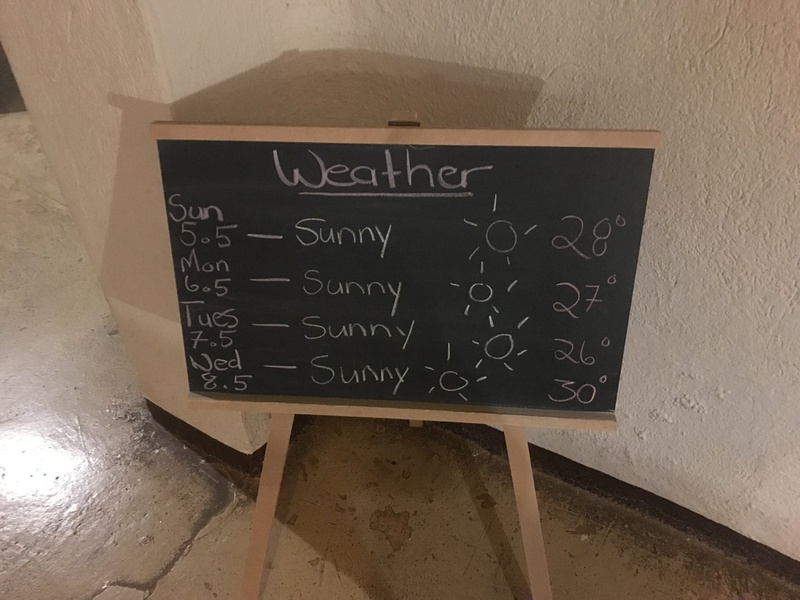 Weather
Sun
5.5 — Sunny 28°
Mon
6.5 — Sunny 27°
Tues
7.5 — Sunny 26°
Wed
8.5 — Sunny 30°